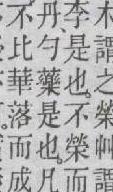 木謂之榮艸謂
李是也。不榮而
丹、勺藥是也。凡
不比華落而成